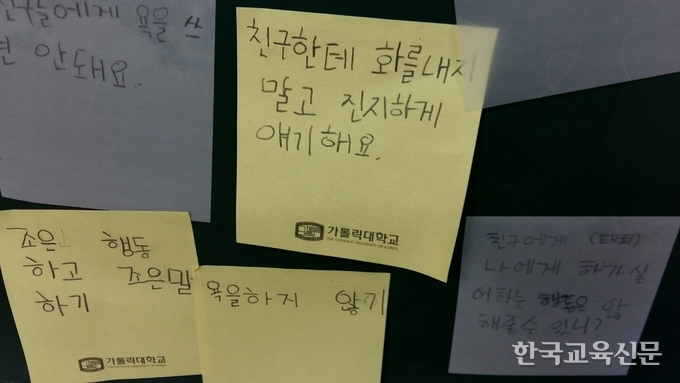 친구들에게 욕을 쓰
면 안돼요.
친구한테 화를내지
말고 진지하게
얘기해요.
가톨릭대학교
THE CATHOLIC UNIVERSITY OF KOREA
조은 행동
하고 조은말
하기
가톨릭대학교
THE CATHOLIC UNIVERSITY OF KOREA
욕을하지 않기
친구에게
나에게 하기 싫
어하는 행동은 않
해줄수 있니?
한국교육신문